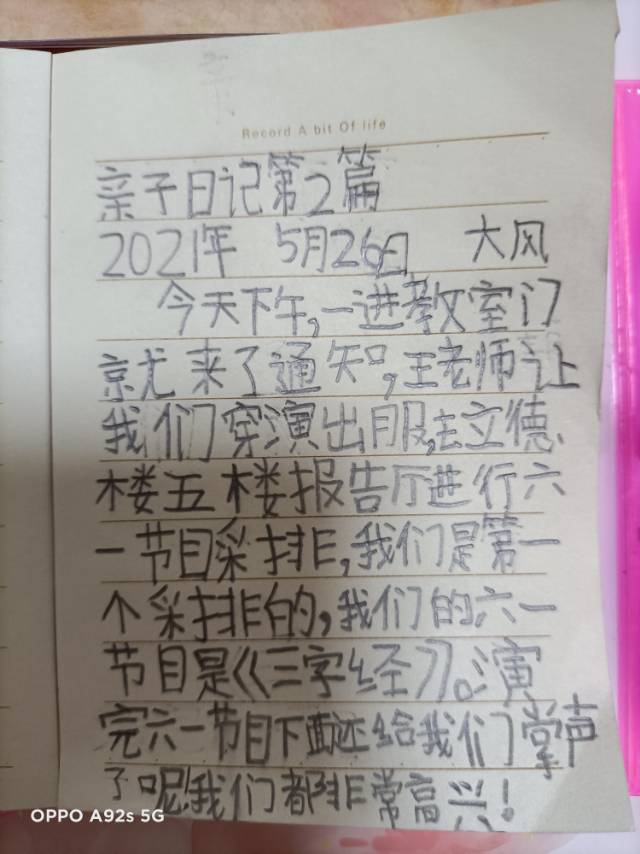 Record A bit Of life
亲子日记第2篇
2021年 5月26日 大风
今天下午,一进教室门
就来了通知,王老师让
我们穿演出服,去立德
楼五楼报告厅进行六
一节目采排,我们是第一
个采排的,我们的六一
节目是《三字经》。演
完六一节目下面还给我们掌声
了呢!我们都非常高兴!
OPPO A92s 5G